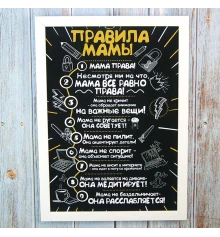 ПРАВИЛА
МАМЫ
1 МАМА ПРАВА!
2 Несмотря ни на что,
МАМА ВСЕ РАВНО
ПРАВА!
3 Мама не кричит
- она обращает внимание
НА ВАЖНЫЕ ВЕЩИ!
4 Мама не ругается -
ОНА СОВЕТУЕТ!
5 Мама не пилит.
Она акцентирует детали!
6 Мама не спорит -
она объясняет ситуацию!
7 Мама не висит в интернете
8 Мама не валяется на диване-
ОНА МЕДИТИРУЕТ!
9 Мама не бездельничает-
ОНА РАССЛАБЛЯЕТСЯ!